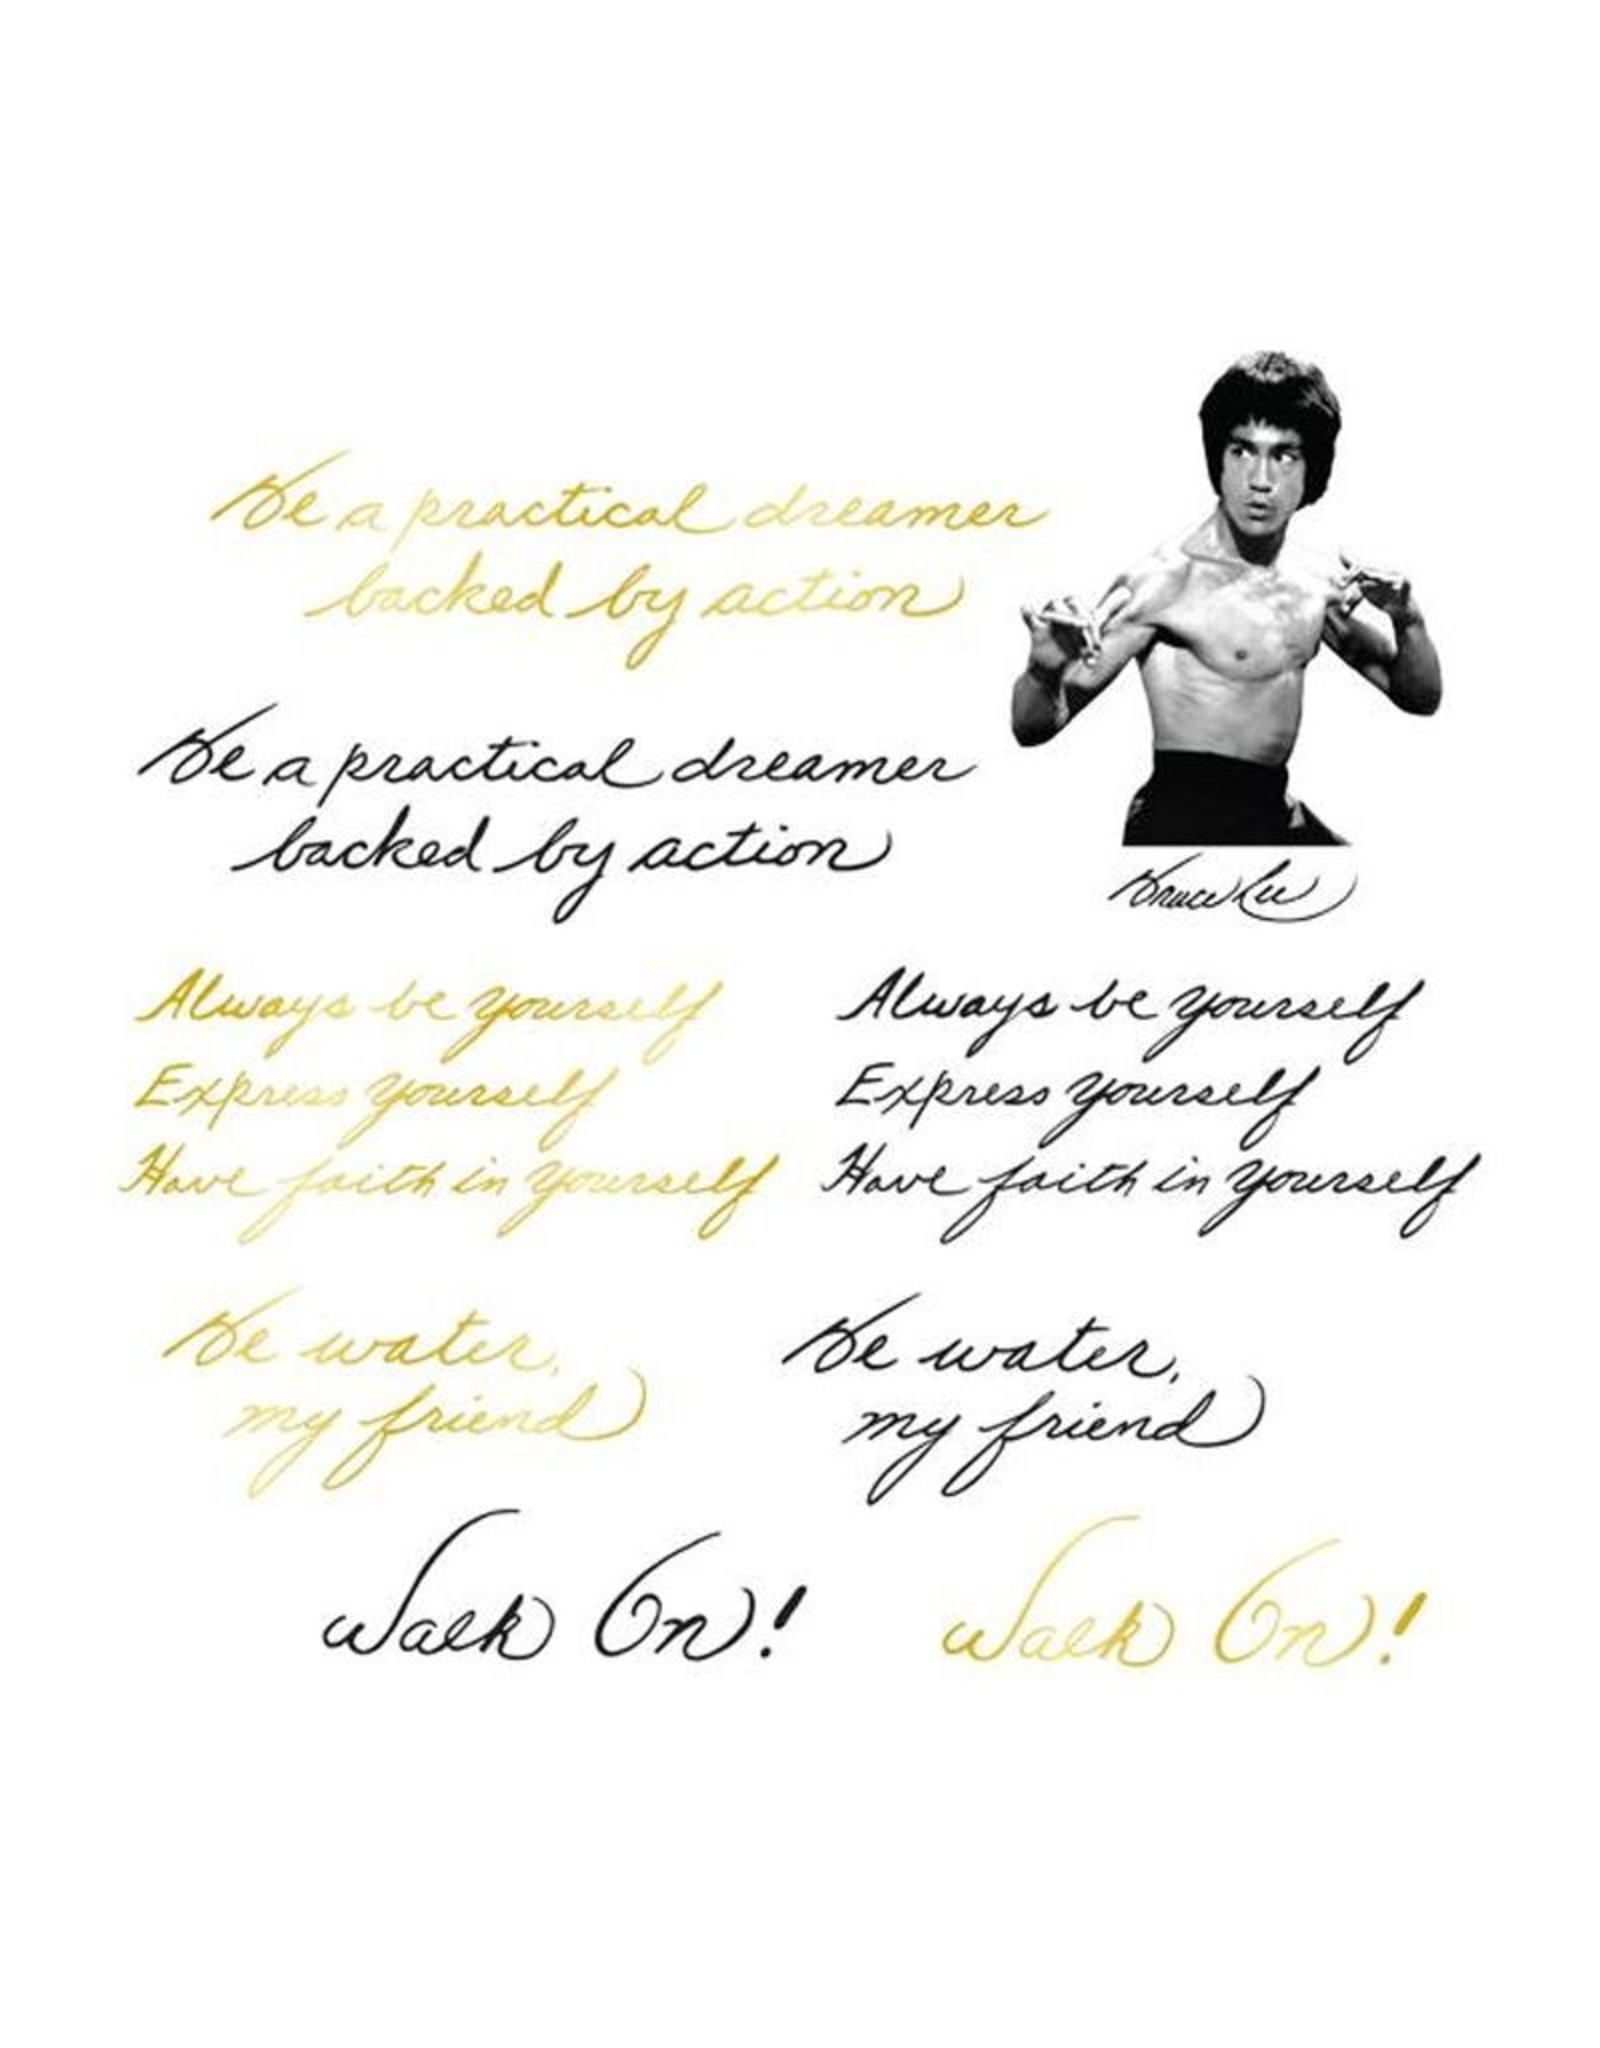 Be a practical dreamer
backed by action
Be a practical dreamer
backed by action
Bruce Lee
Always be yourself
Express yourself
Have faith in yourself
Always be yourself
Express yourself
Have faith in yourself
Be water,
my friend
Be water,
my friend
Walk On!
Walk On!